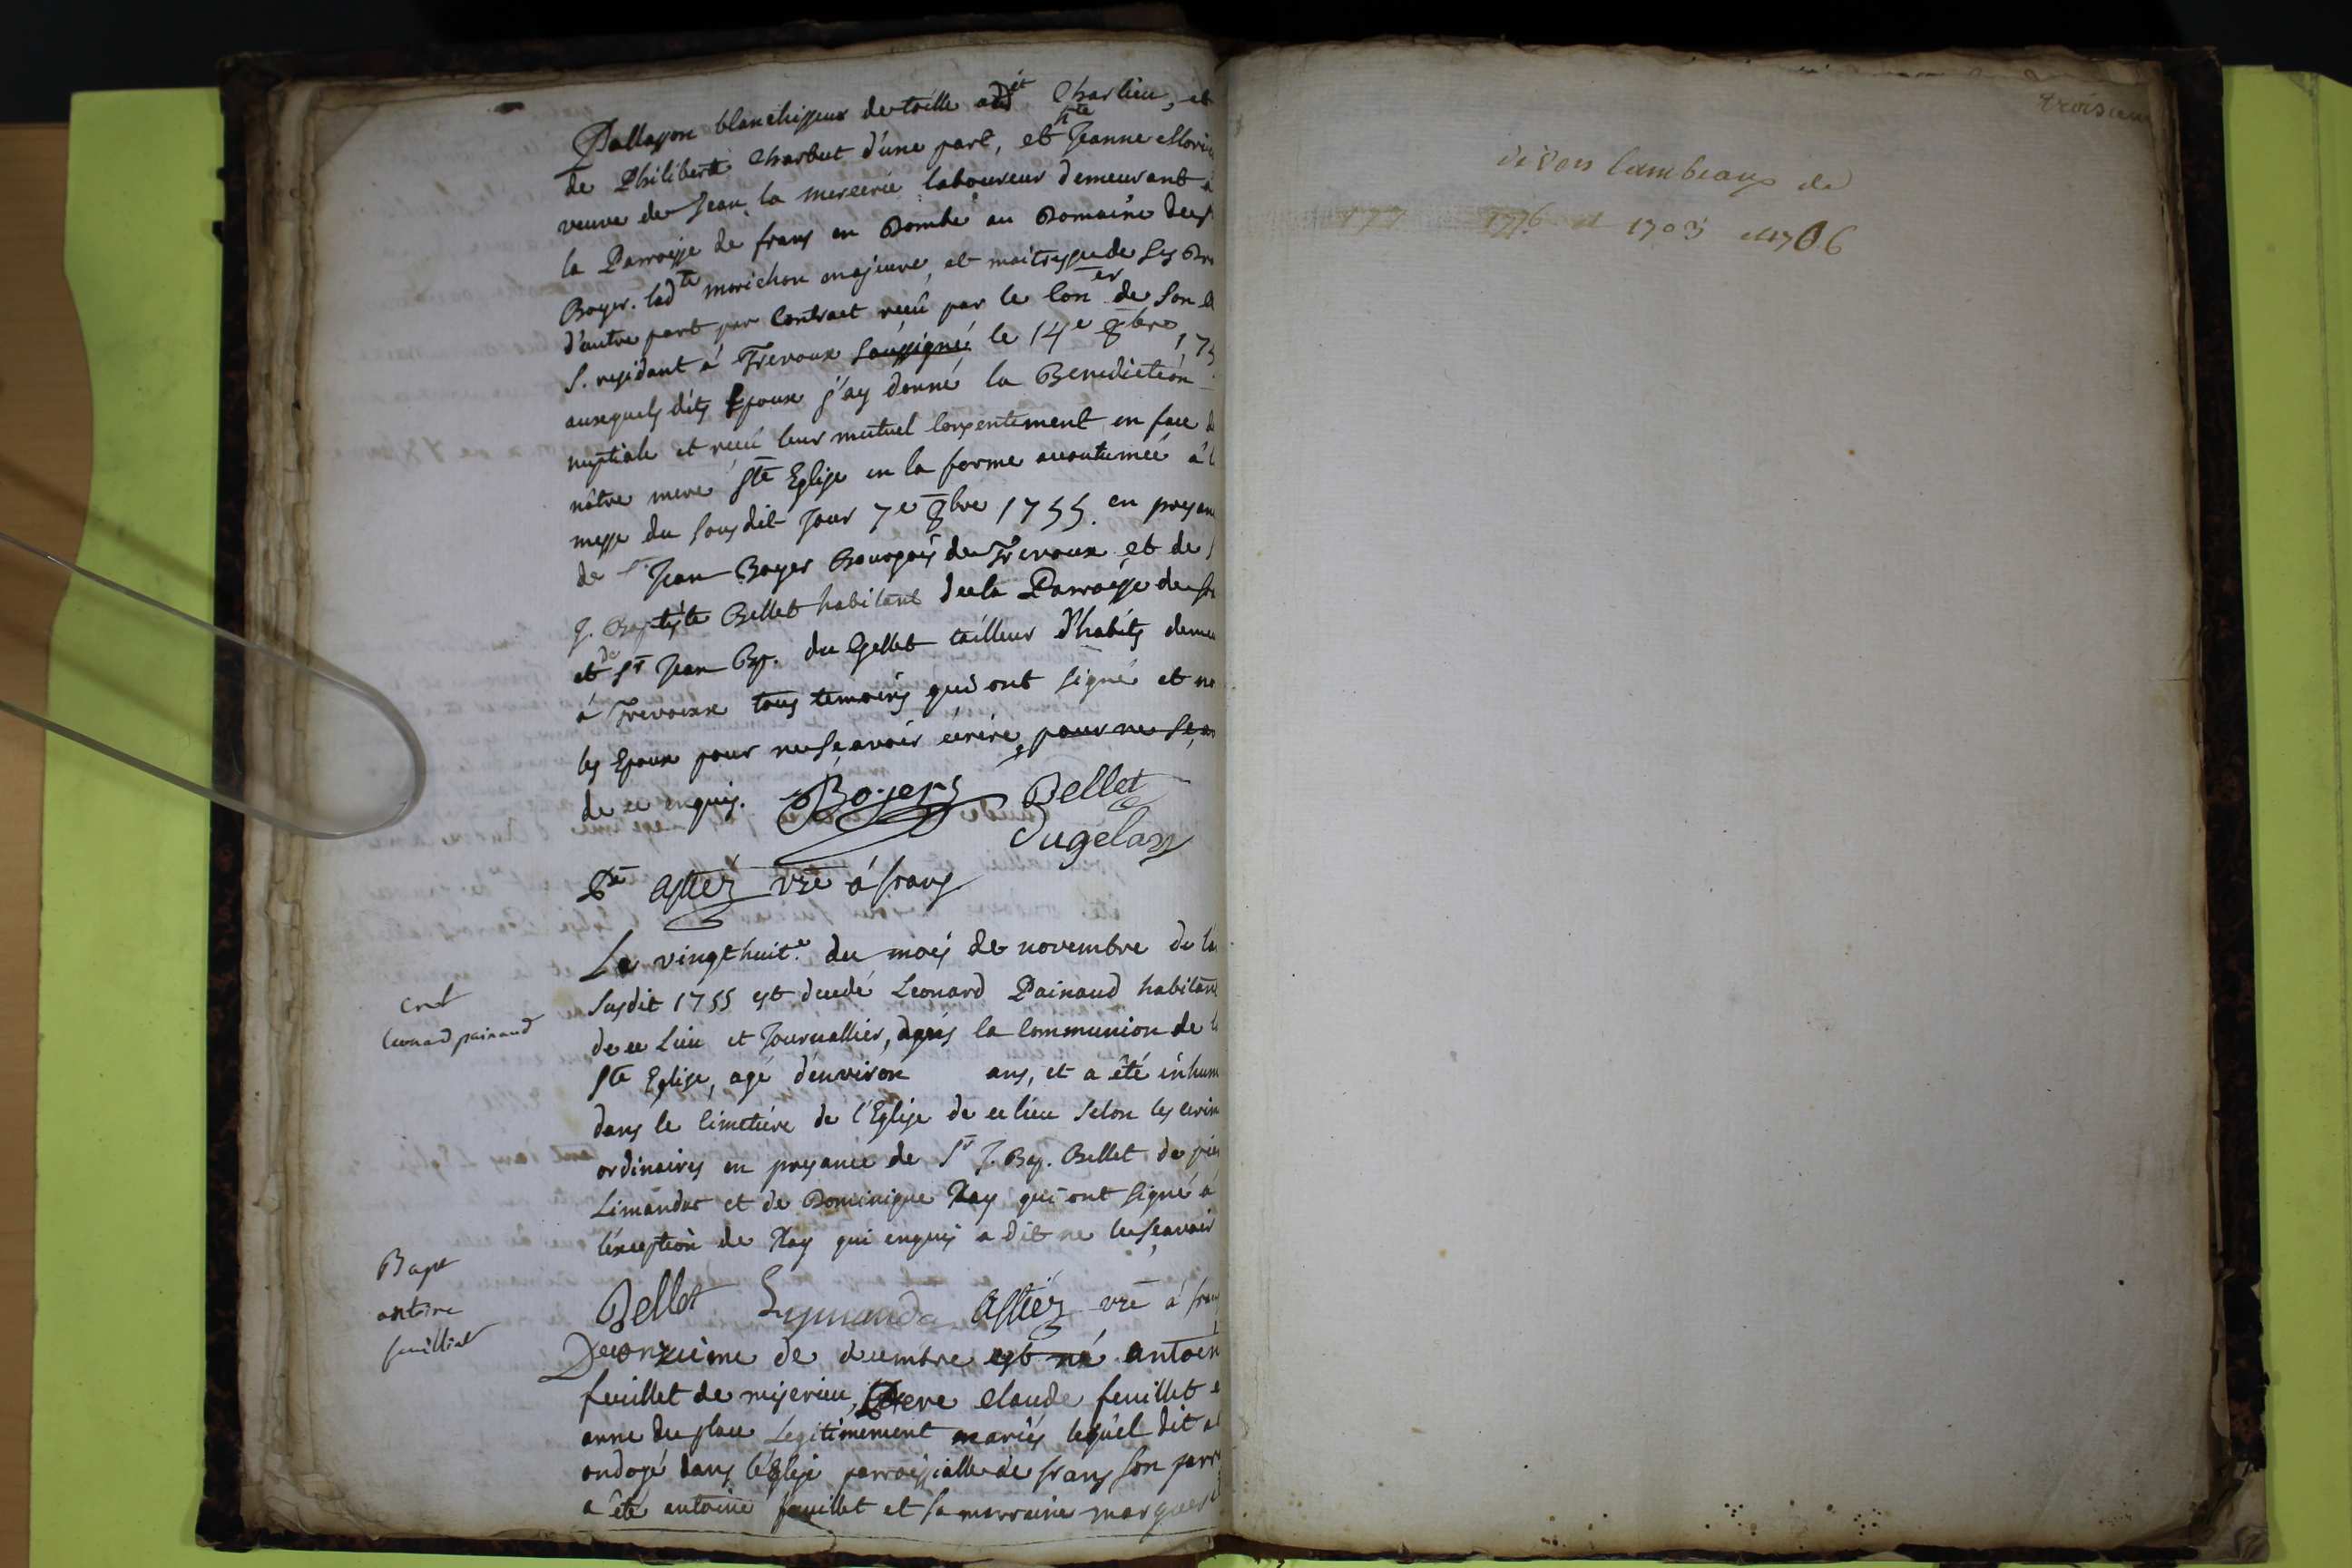 Pallasson blanchisseur de toille aud^it Charlieu, et
de Philiberte Charbut d'une part, et h^te Jeanne Mori
veuve de Jean la mercerie laboureur demeurant a
la Parroisse de frans en Dombe au Domaine du s^r
Boyer. lad^te morichon majeure, et maitresse de ses Dro
d'autre part par Contract recû par le Con^er de Son A
S. residant á Trevoux soussigné le 14^e 8^bre 175
auxquels dits Epoux j'ay donné la Benediction
nuptiale et recû leur mutuel consentement en face d
nôtre mere S^te Eglise en la forme accoutumée á l
messe du sous dit Jour 7^e 8^bre 1755. en presan
de S^r Jean Boyer Bourgois de Trevoux et de S
J. Baptiste Bellet habitant de la Parroisse de fra
et de S^r Jean Bap. du Gellet tailleur d'habits demeu
á Trevoux tous temoins qui ont signé et no
les Epoux pour ne sçavoir écrire, pour ne sçav
de ce enquis. Boyer Bellet
Dugelay
Astier vre á frans
Le vingt huit^e du mois de novembre de l'a
Susdit 1755 est decedé Leonard Painaud habitant
de ce Lieu et Journallier, apres la Communion de l
S^te Eglise, agé d'environ ans, et a été inhum
dans le Cimetiére de l'Eglise de ce lieu selon les cerim
ordinaires en presance de S^r J. Bap. Bellet de pier
Limandas et de Dominique Nay qui ont signé á
l'exception de Nay qui enquis a dit ne le sçavoir
cret
leonard painaud
Bellet Lymandas Astier vre á frans
Bapt
antoine
feuillet
Deonzieme de decembre est né antoin
feuillet de miserieu, pere claude feuillet e
anne du place Legitimement mariés lequel dit a
ondoyé dans l'églisé parroissialle de frans son parr
a été antoine feuillet et sa marraine marguer
troisieme
divers lambeaux de
177 1776 et 1703 et 1706